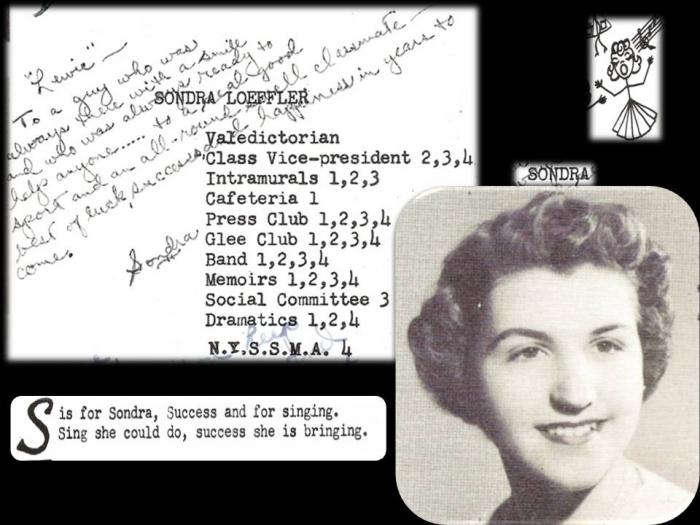 "Lewie" —
To a guy who was
always there with a smile
and who was always ready to
help anyone..... to a real good
sport and an all-round swell classmate —
best of luck, success and happiness in years to
come.
Sondra
SONDRA LOEFFLER
Valedictorian
Class Vice-president 2,3,4
Intramurals 1,2,3
Cafeteria 1
Press Club 1,2,3,4
Glee Club 1,2,3,4
Band 1,2,3,4
Memoirs 1,2,3,4
Social Committee 3
Dramatics 1,2,4
N.Y.S.S.M.A. 4
SONDRA
S is for Sondra, Success and for singing.
Sing she could do, success she is bringing.